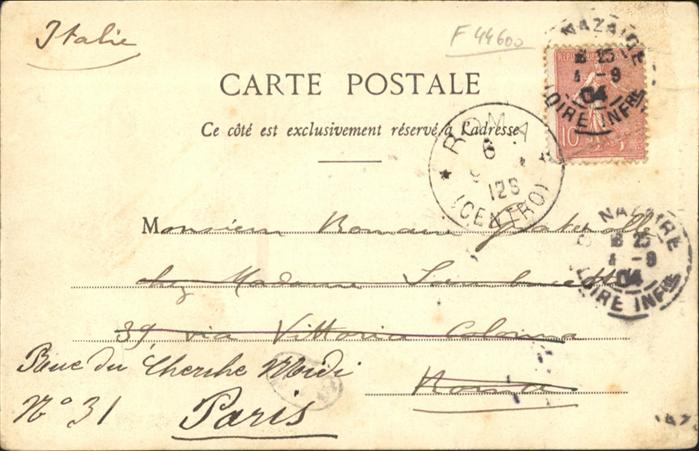 Italie
F 44600
CARTE POSTALE
Ce côté est exclusivement réservé à l'adresse
NAZAIRE
18 25
4 - 9
04
LOIRE INFRE
10
ROMA
6
12S
(CENTRO)
Monsieur Romain
chez Madame
39, via Vittoria Colonna
Roma
Rue du Cherche Midi
N° 31 Paris
NAZAIRE
18 25
4 - 9
04
LOIRE INFRE